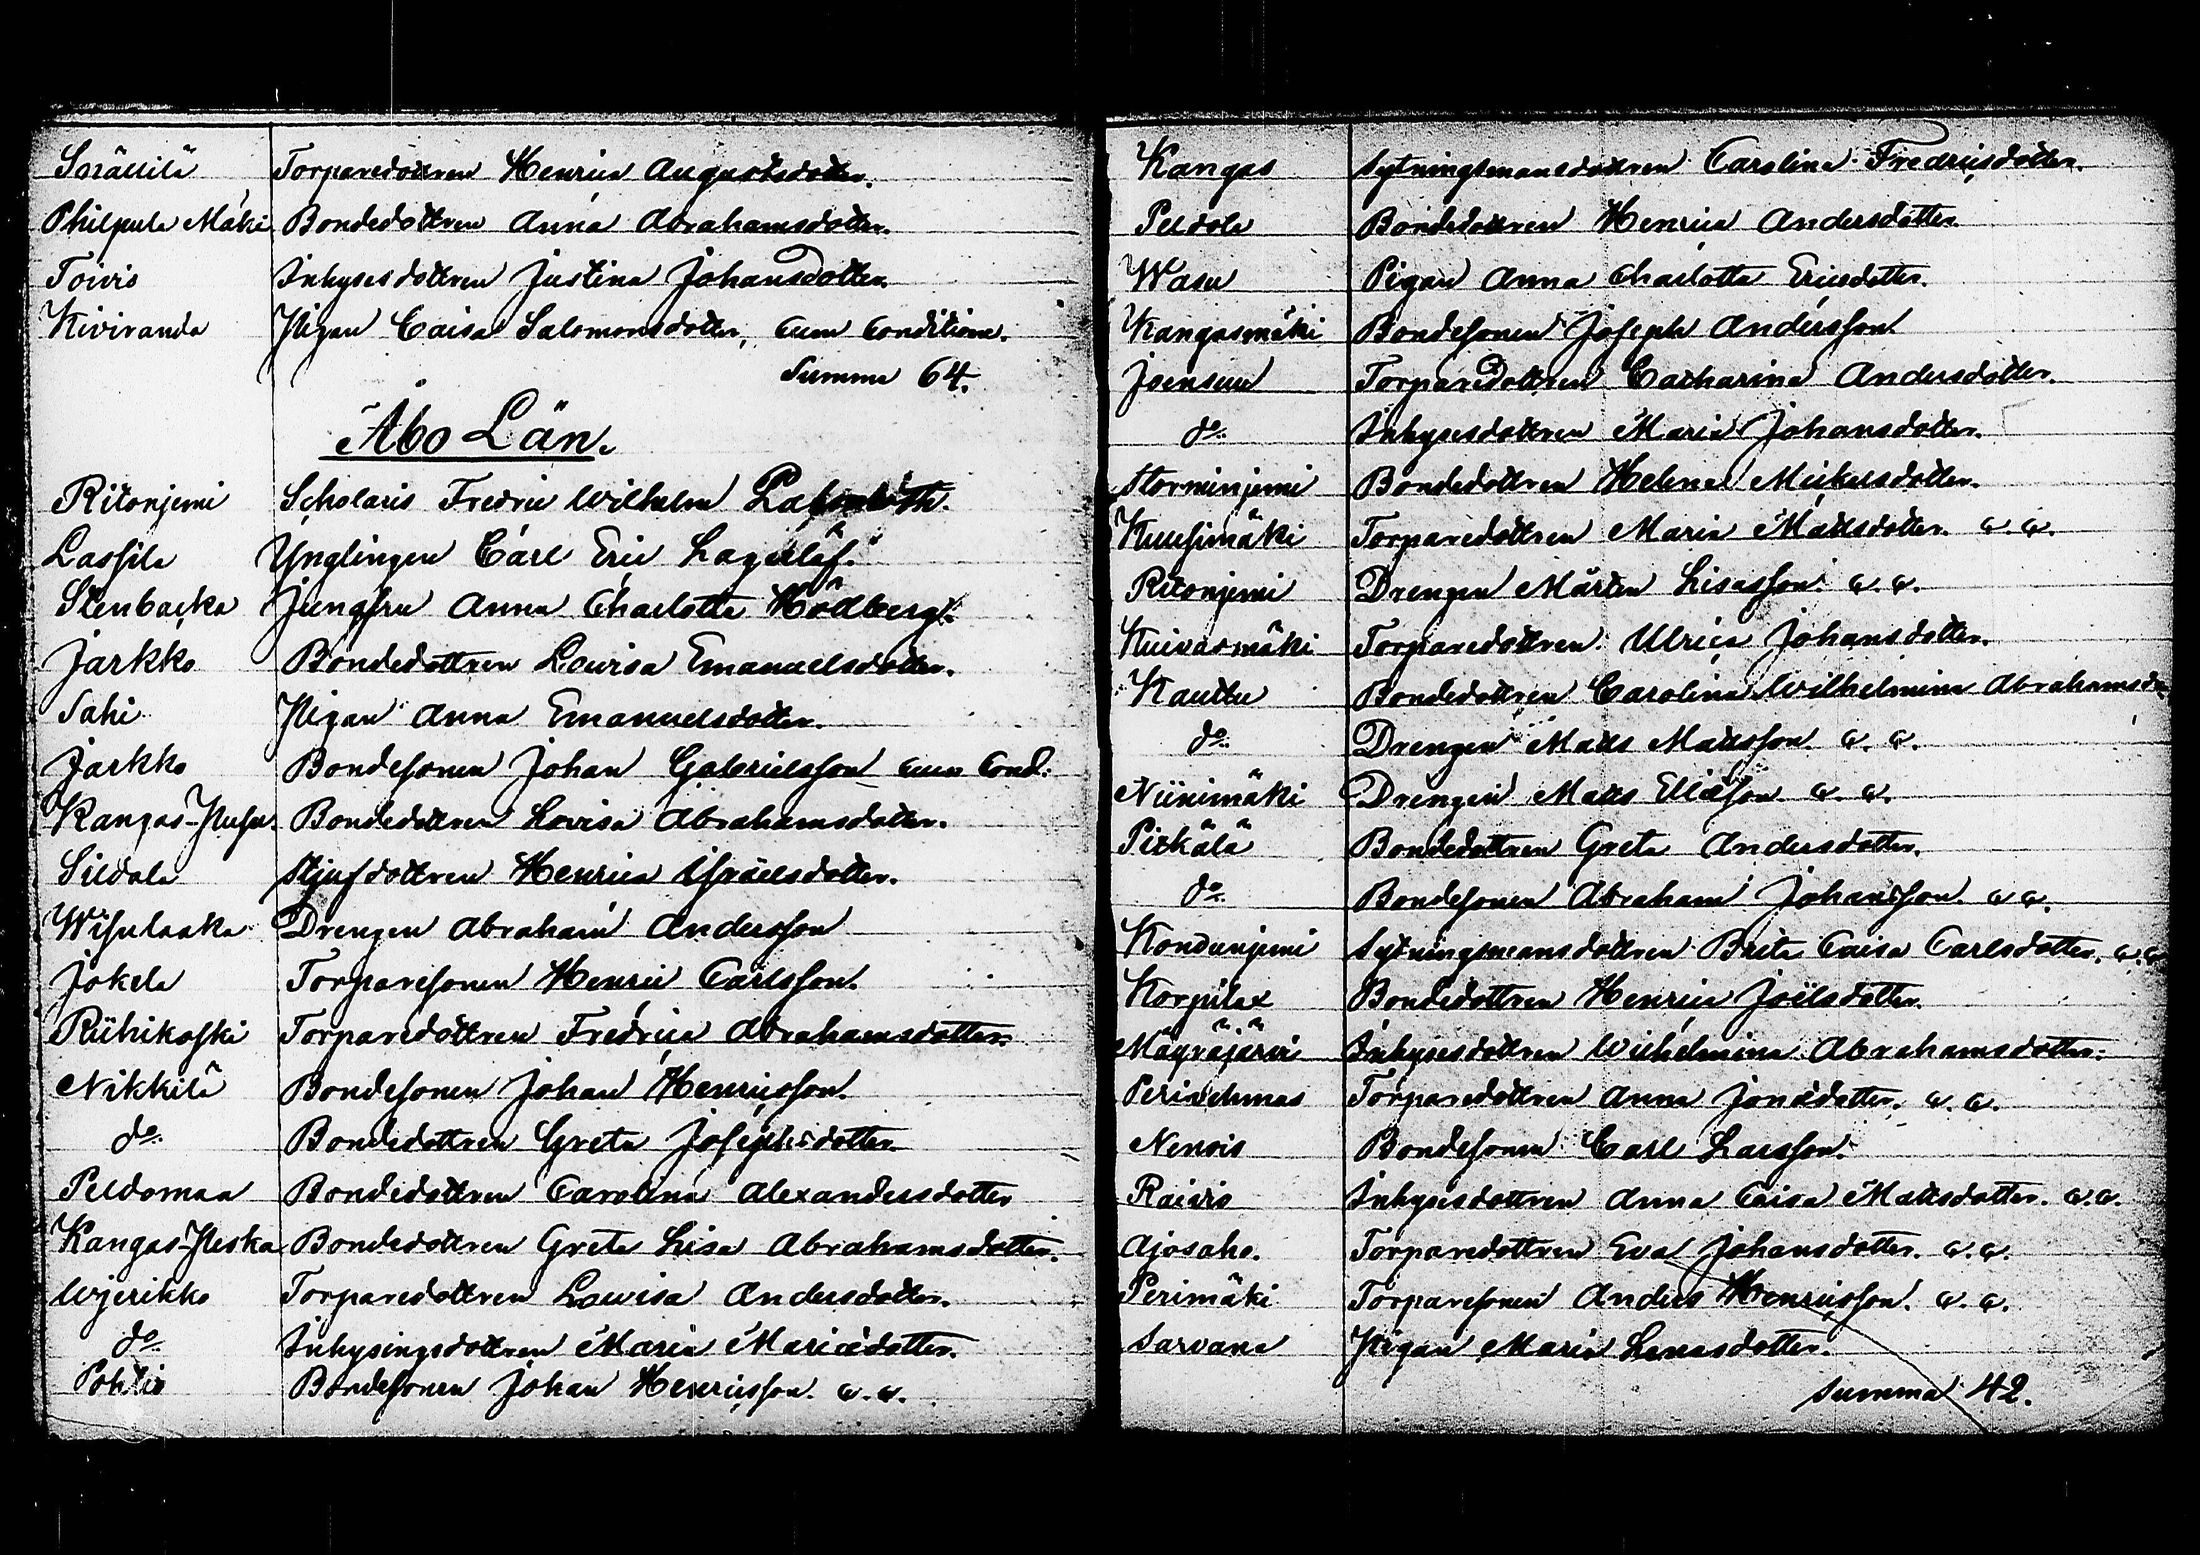 Sorättilä Torparedottren Henrica Augustsdotter.
Philpula Mäki Bondedottren Anna Abrahamsdotter.
Toivis Inhysesdottren Justina Johansdotter.
Kiviranda Pigan Caisa Salomonsdotter, cum conditione.
Summa 64.
Åbo Län.
Ritonjemi Scholaris Fredric Wilhelm
Lassila Ynglingen Carl Eric Lagerlöf.
Stenbacka Jungfru Anna Charlotta Hödberg.
Jarkko Bondedottren Lovisa Emanuelsdotter.
Sahi Pigan Anna Emanuelsdotter.
Jarkko Bondesonen Johan Gabrielsson cum Cond.
Kangas- Bondedottren Lovisa Abrahamsdotter.
Sildala Stjufdottren Henrica Israelsdotter.
Drengen Abraham Andersson
Jokela Torparesonen Henric Carlsson.
Riihikoski Torparedottren Fredrica Abrahamsdotter.
Nikkilä Bondesonen Johan Henricsson.
do. Bondedottren Greta Josephsdotter.
Peldomaa Bondedottren Carolina Alexandersdotter
Kangas- Bondedottren Greta Lisa Abrahamsdotter.
Wjerikko Torparedottren Lovisa Andersdotter.
do. Inhysingsdottren Maria Mariædotter.
Pohlis Bondesonen Johan Henricsson. c. c.
Kangas Sytningsmansdottren Carolina Fredricsdotter.
Peldola Bondedottren Henrica Andersdotter.
Wasu Pigan Anna Charlotta Ericsdotter.
Kangasmäki Bondesonen Joseph Andersson.
Joensuu Torparedottren Catharina Andersdotter.
do. Inhysesdottren Maria Johansdotter.
Storminjemi Bondedottren Helena Mickelsdotter.
Kuusimäki Torparedottren Maria Mattsdotter. c. c.
Ritonjemi Drengen Mårten Lisasson. c. c.
Kuivasmäki Torparedottren Ulrica Johansdotter.
Kauttu Bondedottren Carolina Wilhelmina Abrahamsd
do. Drengen Matts Mattsson. c. c.
Niinimäki Drengen Matts Eliæson. c. c.
Pitkälä Bondedottren Greta Andersdotter.
do. Bondesonen Abraham Johansson. c c.
Kondunjemi Sytningsmansdottren Brita Caisa Carlsdotter. c. c
Korpilax Bondedottren Henrica Joëlsdotter
Mägräjärvi Inhysesdottren Wilhelmina Abrahamsdotter.
Torparedottren Anna Jonædotter. c. c.
Nenois Bondesonen Carl Larsson.
Raivis Inhysesdottren Anna Caisa Mattsdotter. c. c.
Ajosaho. Torparedottren Eva Johansdotter. c. c.
Perimäki Torparesonen Anders Henricsson. c. c.
Sarvana Pigan Maria Lenasdotter.
Summa 42.